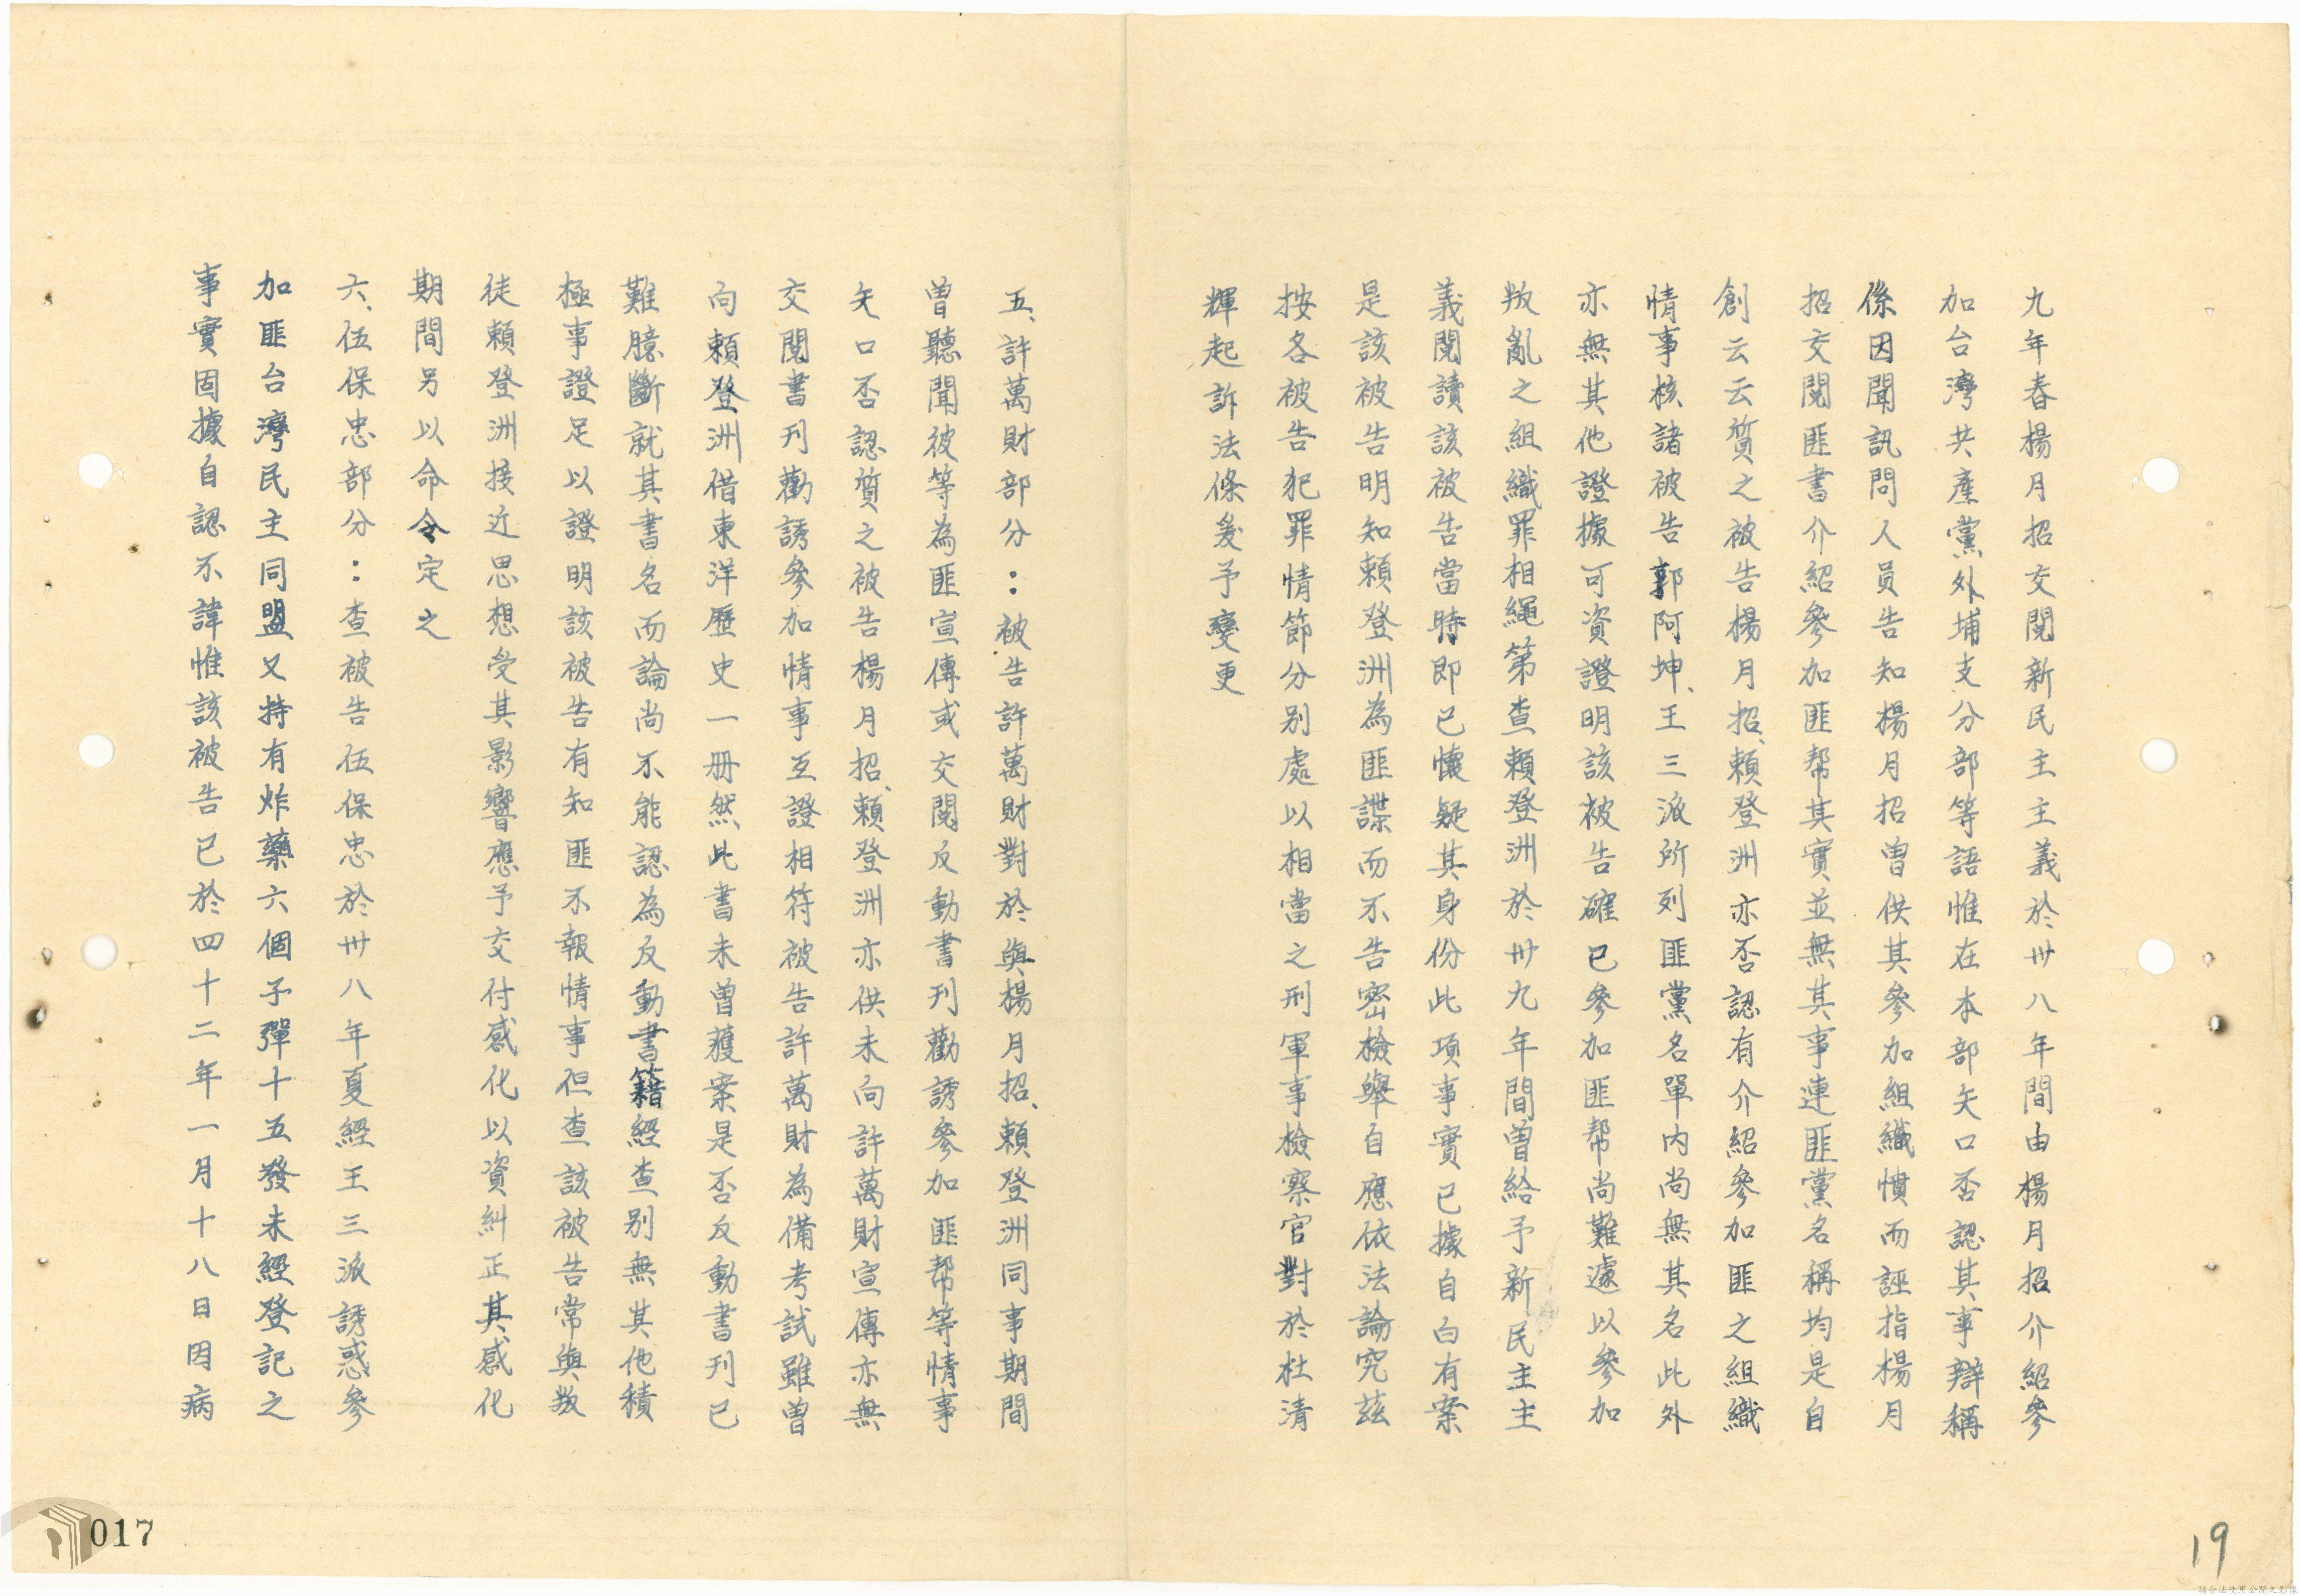 九年春楊月招交閱新民主主義於卅八年間由楊月招介紹參
加台灣共產黨外埔支分部等語惟在本部矢口否認其事辯稱
係因聞訊問人員告知楊月招曾供其參加組織憤而誣指楊月
招交閱匪書介紹參加匪幫其實並無其事連匪黨名稱均是自
創云云質之被告楊月招、賴登洲亦否認有介紹參加匪之組織
情事核諸被告郭阿坤、王三派所列匪黨名單內尚無其名此外
亦無其他證據可資證明該被告確已參加匪帮尚難遽以參加
叛亂之組織罪相繩第查賴登洲於卅九年間曾給予新民主主
義閱讀該被告當時即已懷疑其身份此項事實已據自白有案
是該被告明知賴登洲為匪諜而不告密檢舉自應依法論究茲
按各被告犯罪情節分別處以相當之刑軍事檢察官對於杜清
輝起訴法條爰予變更
五、許萬財部分：被告許萬財對於與楊月招、賴登洲同事期間
曾聽聞彼等為匪宣傳或交閱反動書刊勸誘參加匪幫等情事
矢口否認質之被告楊月招、賴登洲亦供未向許萬財宣傳亦無
交閱書刊勸誘參加情事互證相符被告許萬財為備考試雖曾
向賴登洲借東洋歷史一册然此書未曾獲案是否反動書刊已
難臆斷就其書名而論尚不能認為反動書籍經查別無其他積
極事證足以證明該被告有知匪不報情事但查該被告常與叛
徒賴登洲接近思想受其影響應予交付感化以資糾正其感化
期間另以命令定之
六、伍保忠部分：查被告伍保忠於卅八年夏經王三派誘惑參
加匪台灣民主同盟又持有炸藥六個子彈十五發未經登記之
事實固據自認不諱惟該被告已於四十二年一月十八日因病
017
19
請合法使用公開之影像